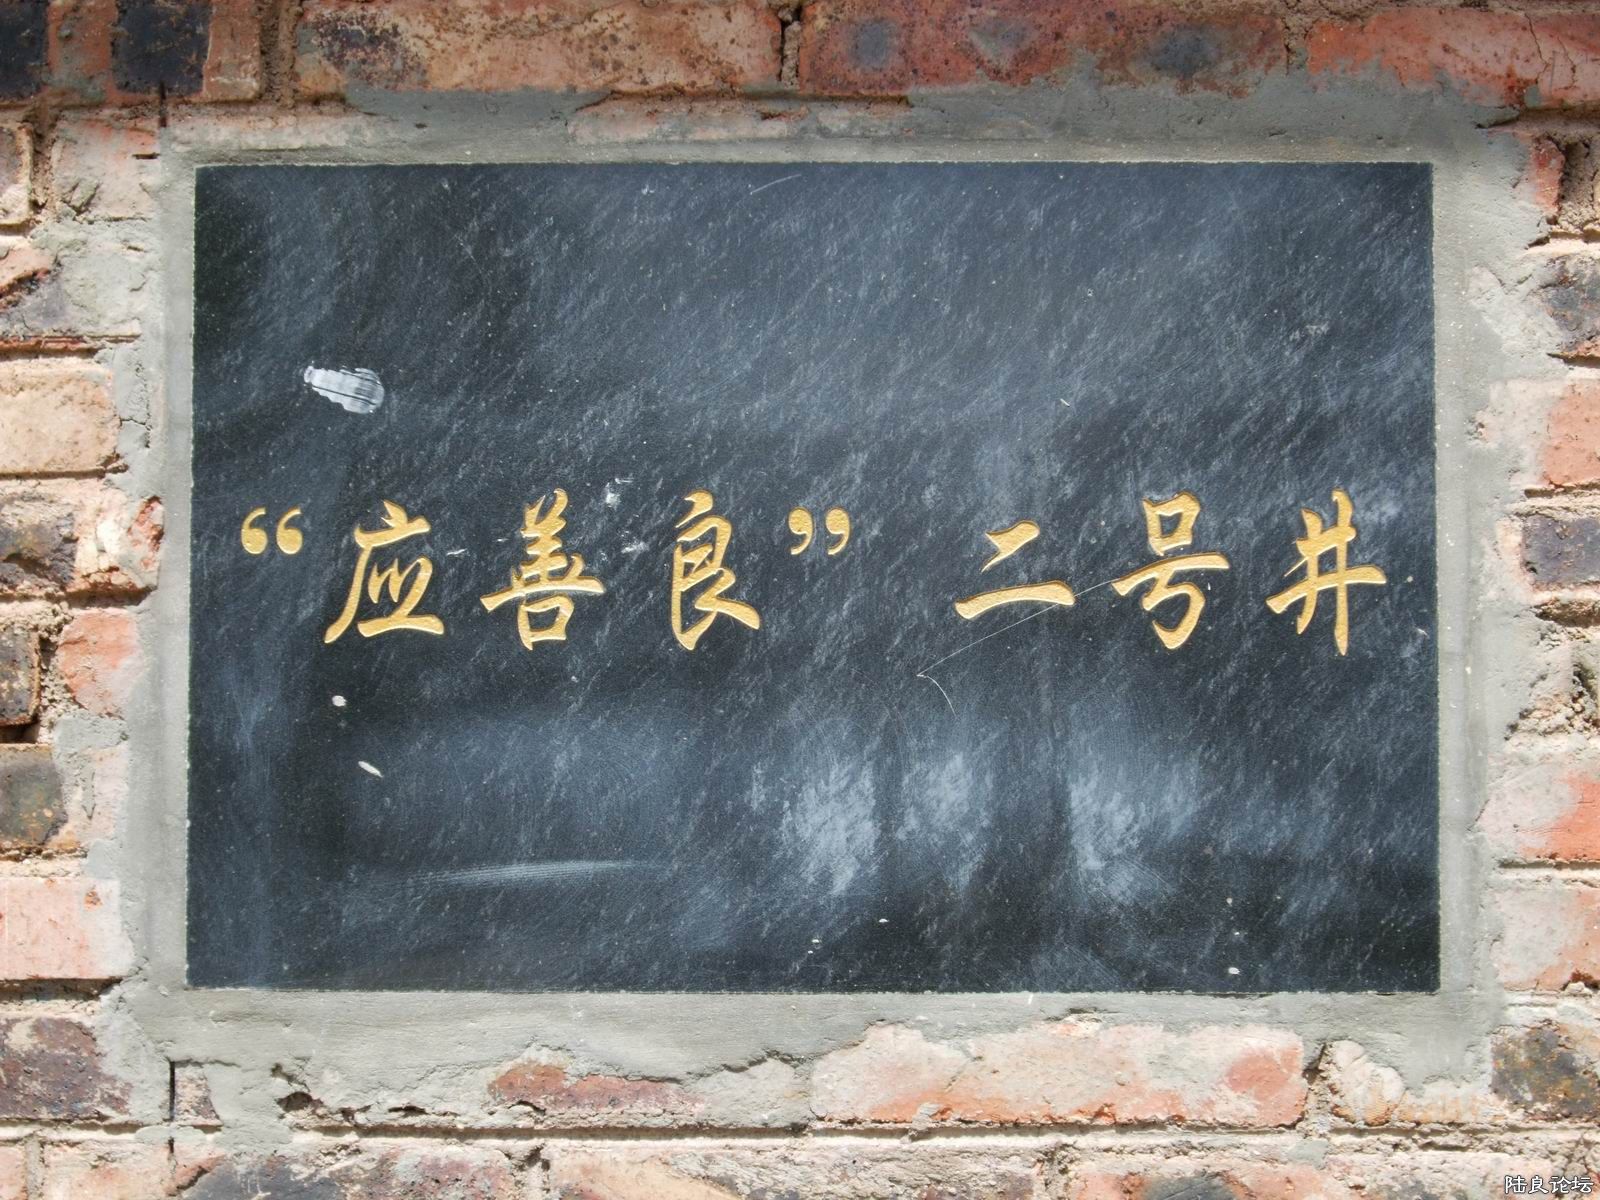 “应善良” 二号井
陆良论坛